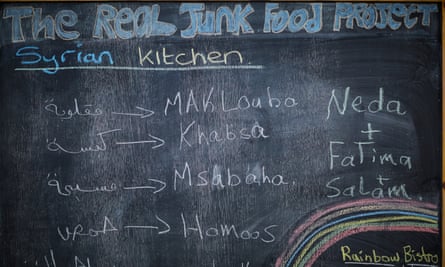 The Real Junk Food Project
Syrian Kitchen.
مقلوبة → MAKLouba
كبسة → Khabsa
مسبحة → Msabaha.
→ Homoos
Neda
+
Fatima
+
Salam.
Rainbow Bistro